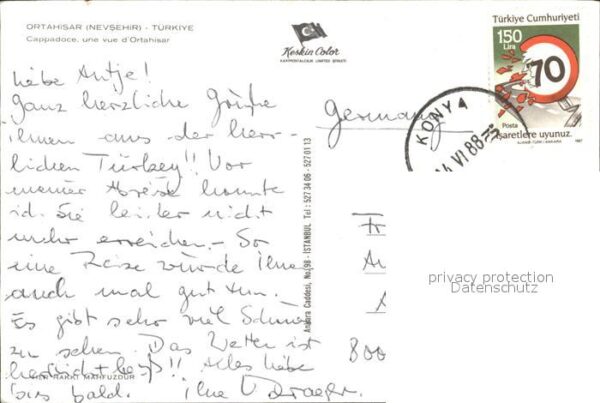 ORTAHISAR (NEVŞEHIR) - TÜRKIYE
Cappadoce, une vue d'Ortahisar
Keskin Color
KARTPOSTALCILIK LIMITED ŞIRKETI
Türkiye Cumhuriyeti
150
Lira
70
Posta
İşaretlere uyunuz.
1987
KONYA
14 VI 88
liebe Antje!
Ganz herzliche Grüße
Ihnen aus der herr-
lichen Türkey!! Vor
meiner Abreise konnte
ich Sie leider nicht
mehr erreichen. - So
eine Reise würde Ihnen
auch mal gut tun.
Es gibt sehr viel Schönes
zu sehen. Das Wetter ist
herrlich!! Alles liebe
bis bald. Ihre U.
HER HAKKI MAHFUZDUR
Ankara Caddesi, No. 98 - İSTANBUL Tel : 527 34 06 - 527 01 13
Germany
Fr
A
A
800
privacy protection
Datenschutz